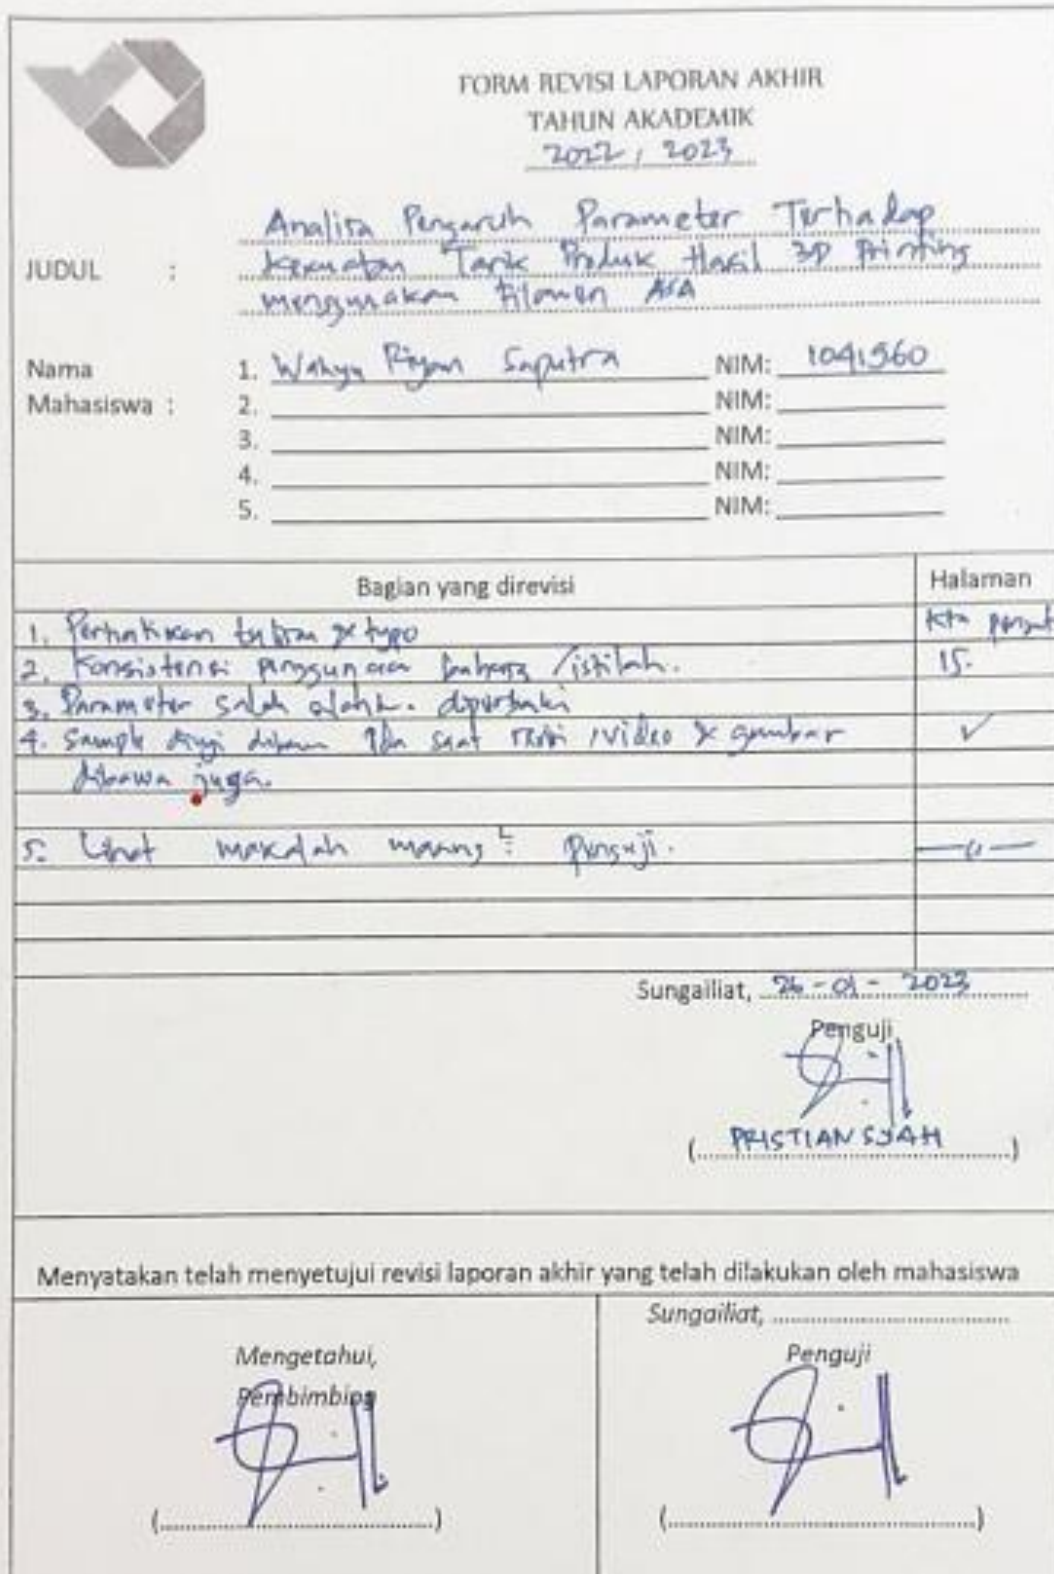 FORM REVISI LAPORAN AKHIR
TAHUN AKADEMIK
2022 / 2023
JUDUL :
Analisa Pengaruh Parameter Terhadap
Kekuatan Tarik Produk Hasil 3D Printing
menggunakan Filamen ASA
Nama
Mahasiswa :
1. Wahyu Riyan Saputra NIM: 1041960
2. NIM:
3. NIM:
4. NIM:
5. NIM:
Bagian yang direvisi Halaman
1. Perhatikan & typo
2. Konsistensi penggunaan bahasa /istilah. 15.
3. Parameter salah diperbaiki
4. Sample uji dibawa saat /video & gambar ✓
dibawa juga.
5. Lihat makalah penguji. —"—
Sungailiat, 26-01-2023
Penguji
(PRISTIANSYAH)
Menyatakan telah menyetujui revisi laporan akhir yang telah dilakukan oleh mahasiswa
Mengetahui,
Pembimbing
(..........)
Sungailiat, ..........
Penguji
(..........)